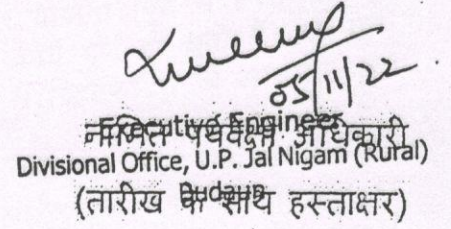 05/11/22
Executive Engineer
नामित पर्यवेक्षी अधिकारी
Divisional Office, U.P. Jal Nigam (Rural)
Budaun
(तारीख के साथ हस्ताक्षर)